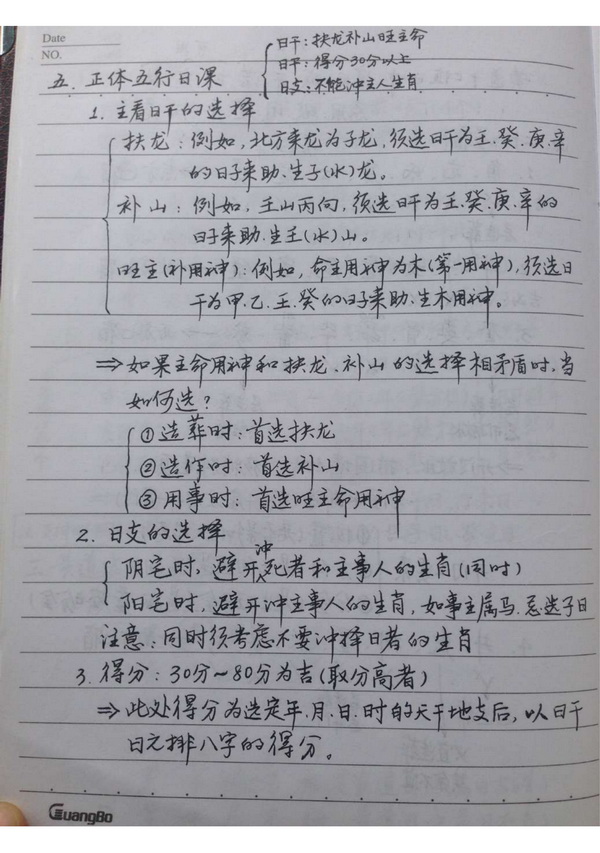 Date
NO.
日干：扶龙补山旺主命
五. 正体五行日课
日干：得分30分以上
日支：不能冲主人生肖
1. 主看日干的选择
扶龙：例如，北方来龙为子龙，须选日干为壬.癸.庚.辛
的日子来助.生子(水)龙。
补山：例如，壬山丙向，须选日干为壬.癸.庚.辛的
日子来助.生壬(水)山。
旺主(补用神)：例如，命主用神为木(第一用神)，须选日
干为甲.乙.壬.癸的日子来助.生木用神。
⇒如果主命用神和扶龙、补山的选择相矛盾时，当
如何选？
①造葬时：首选扶龙
②造作时：首选补山
③用事时：首选旺主命用神
2. 日支的选择
阴宅时，避开冲死者和主事人的生肖(同时)
阳宅时，避开冲主事人的生肖，如事主属马.忌选子日
注意：同时须考虑不要冲择日者的生肖
3. 得分：30分～80分为吉(取分高者)
⇒此处得分为选定年.月.日.时的天干地支后，以日干
日元排八字的得分。
GuangBo